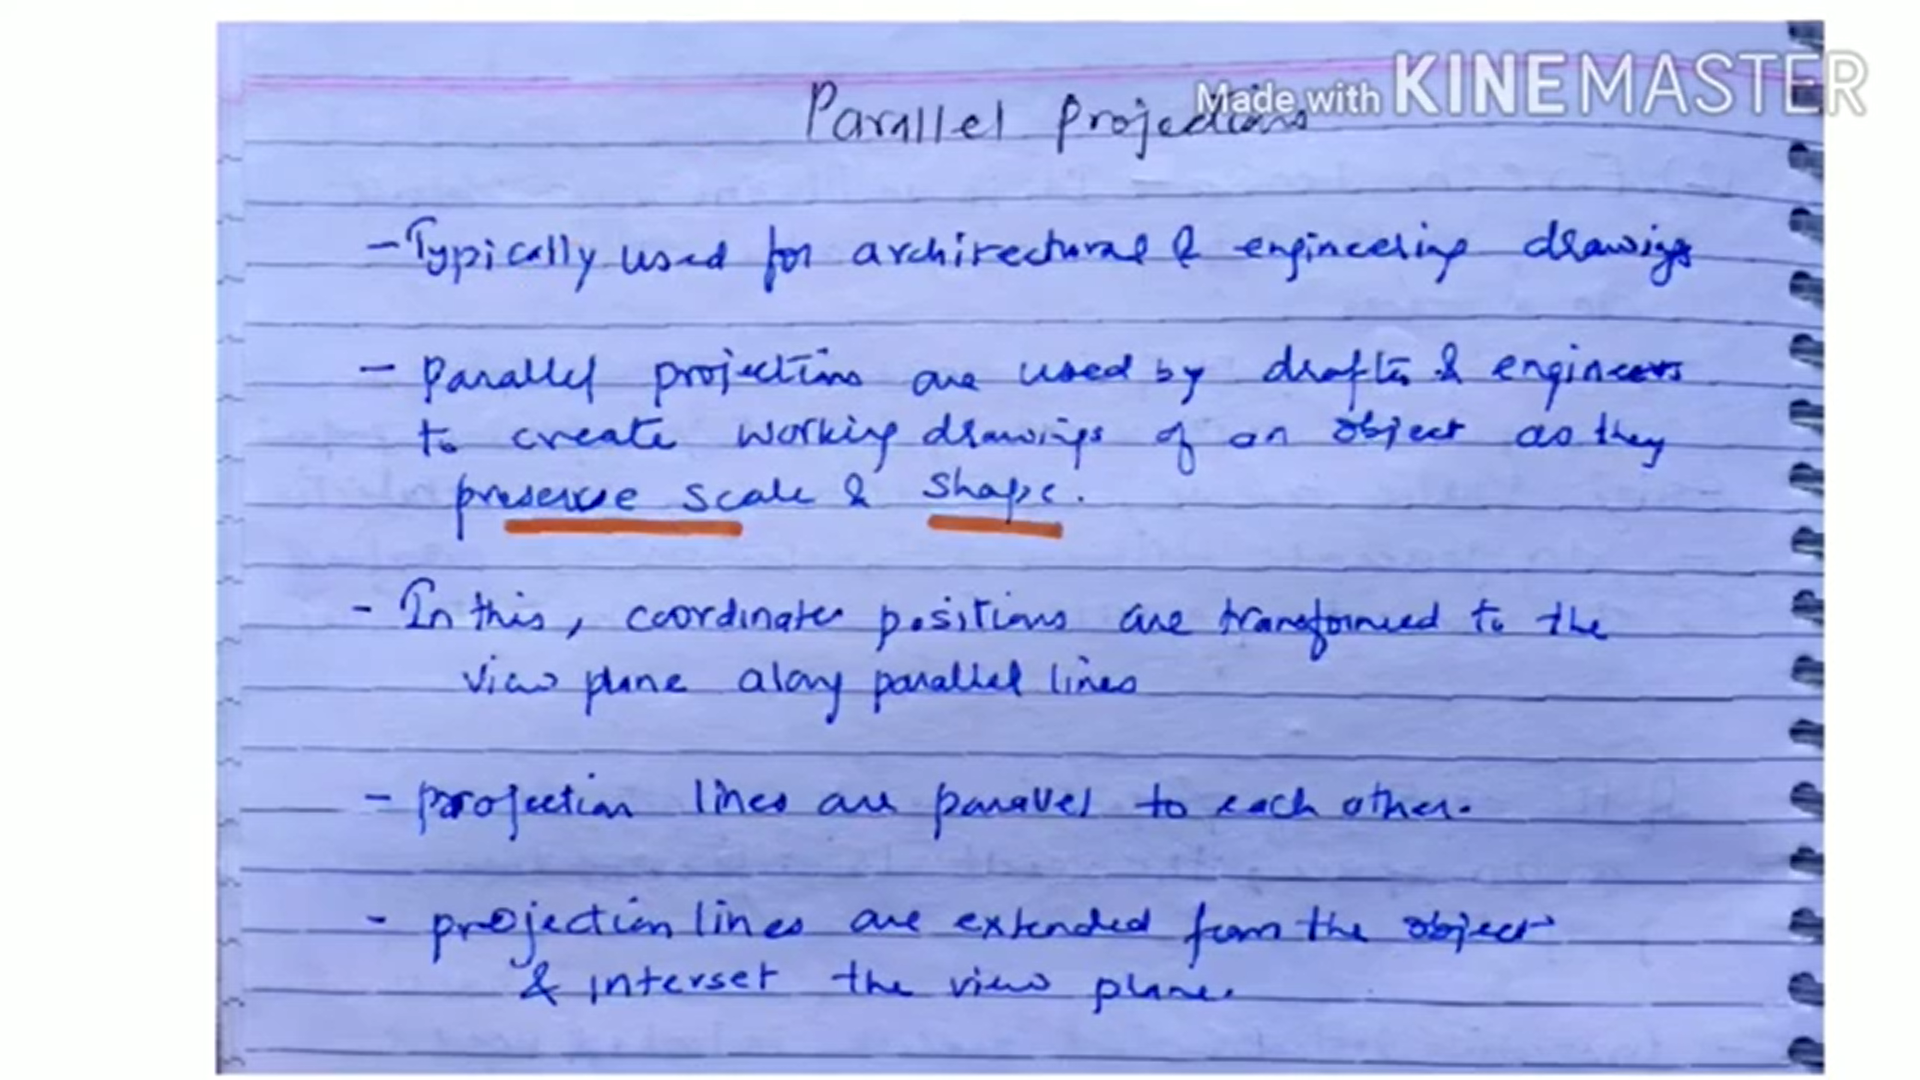 Made with KINEMASTER
Parallel Projections
- Typically used for architectural & engineering drawings
- Parallel projections are used by drafters & engineers
to create working drawings of an object as they
preserve scale & shape.
- In this, coordinate positions are transformed to the
view plane along parallel lines
- projection lines are parallel to each other.
- projection lines are extended from the object
& interset the view plane.